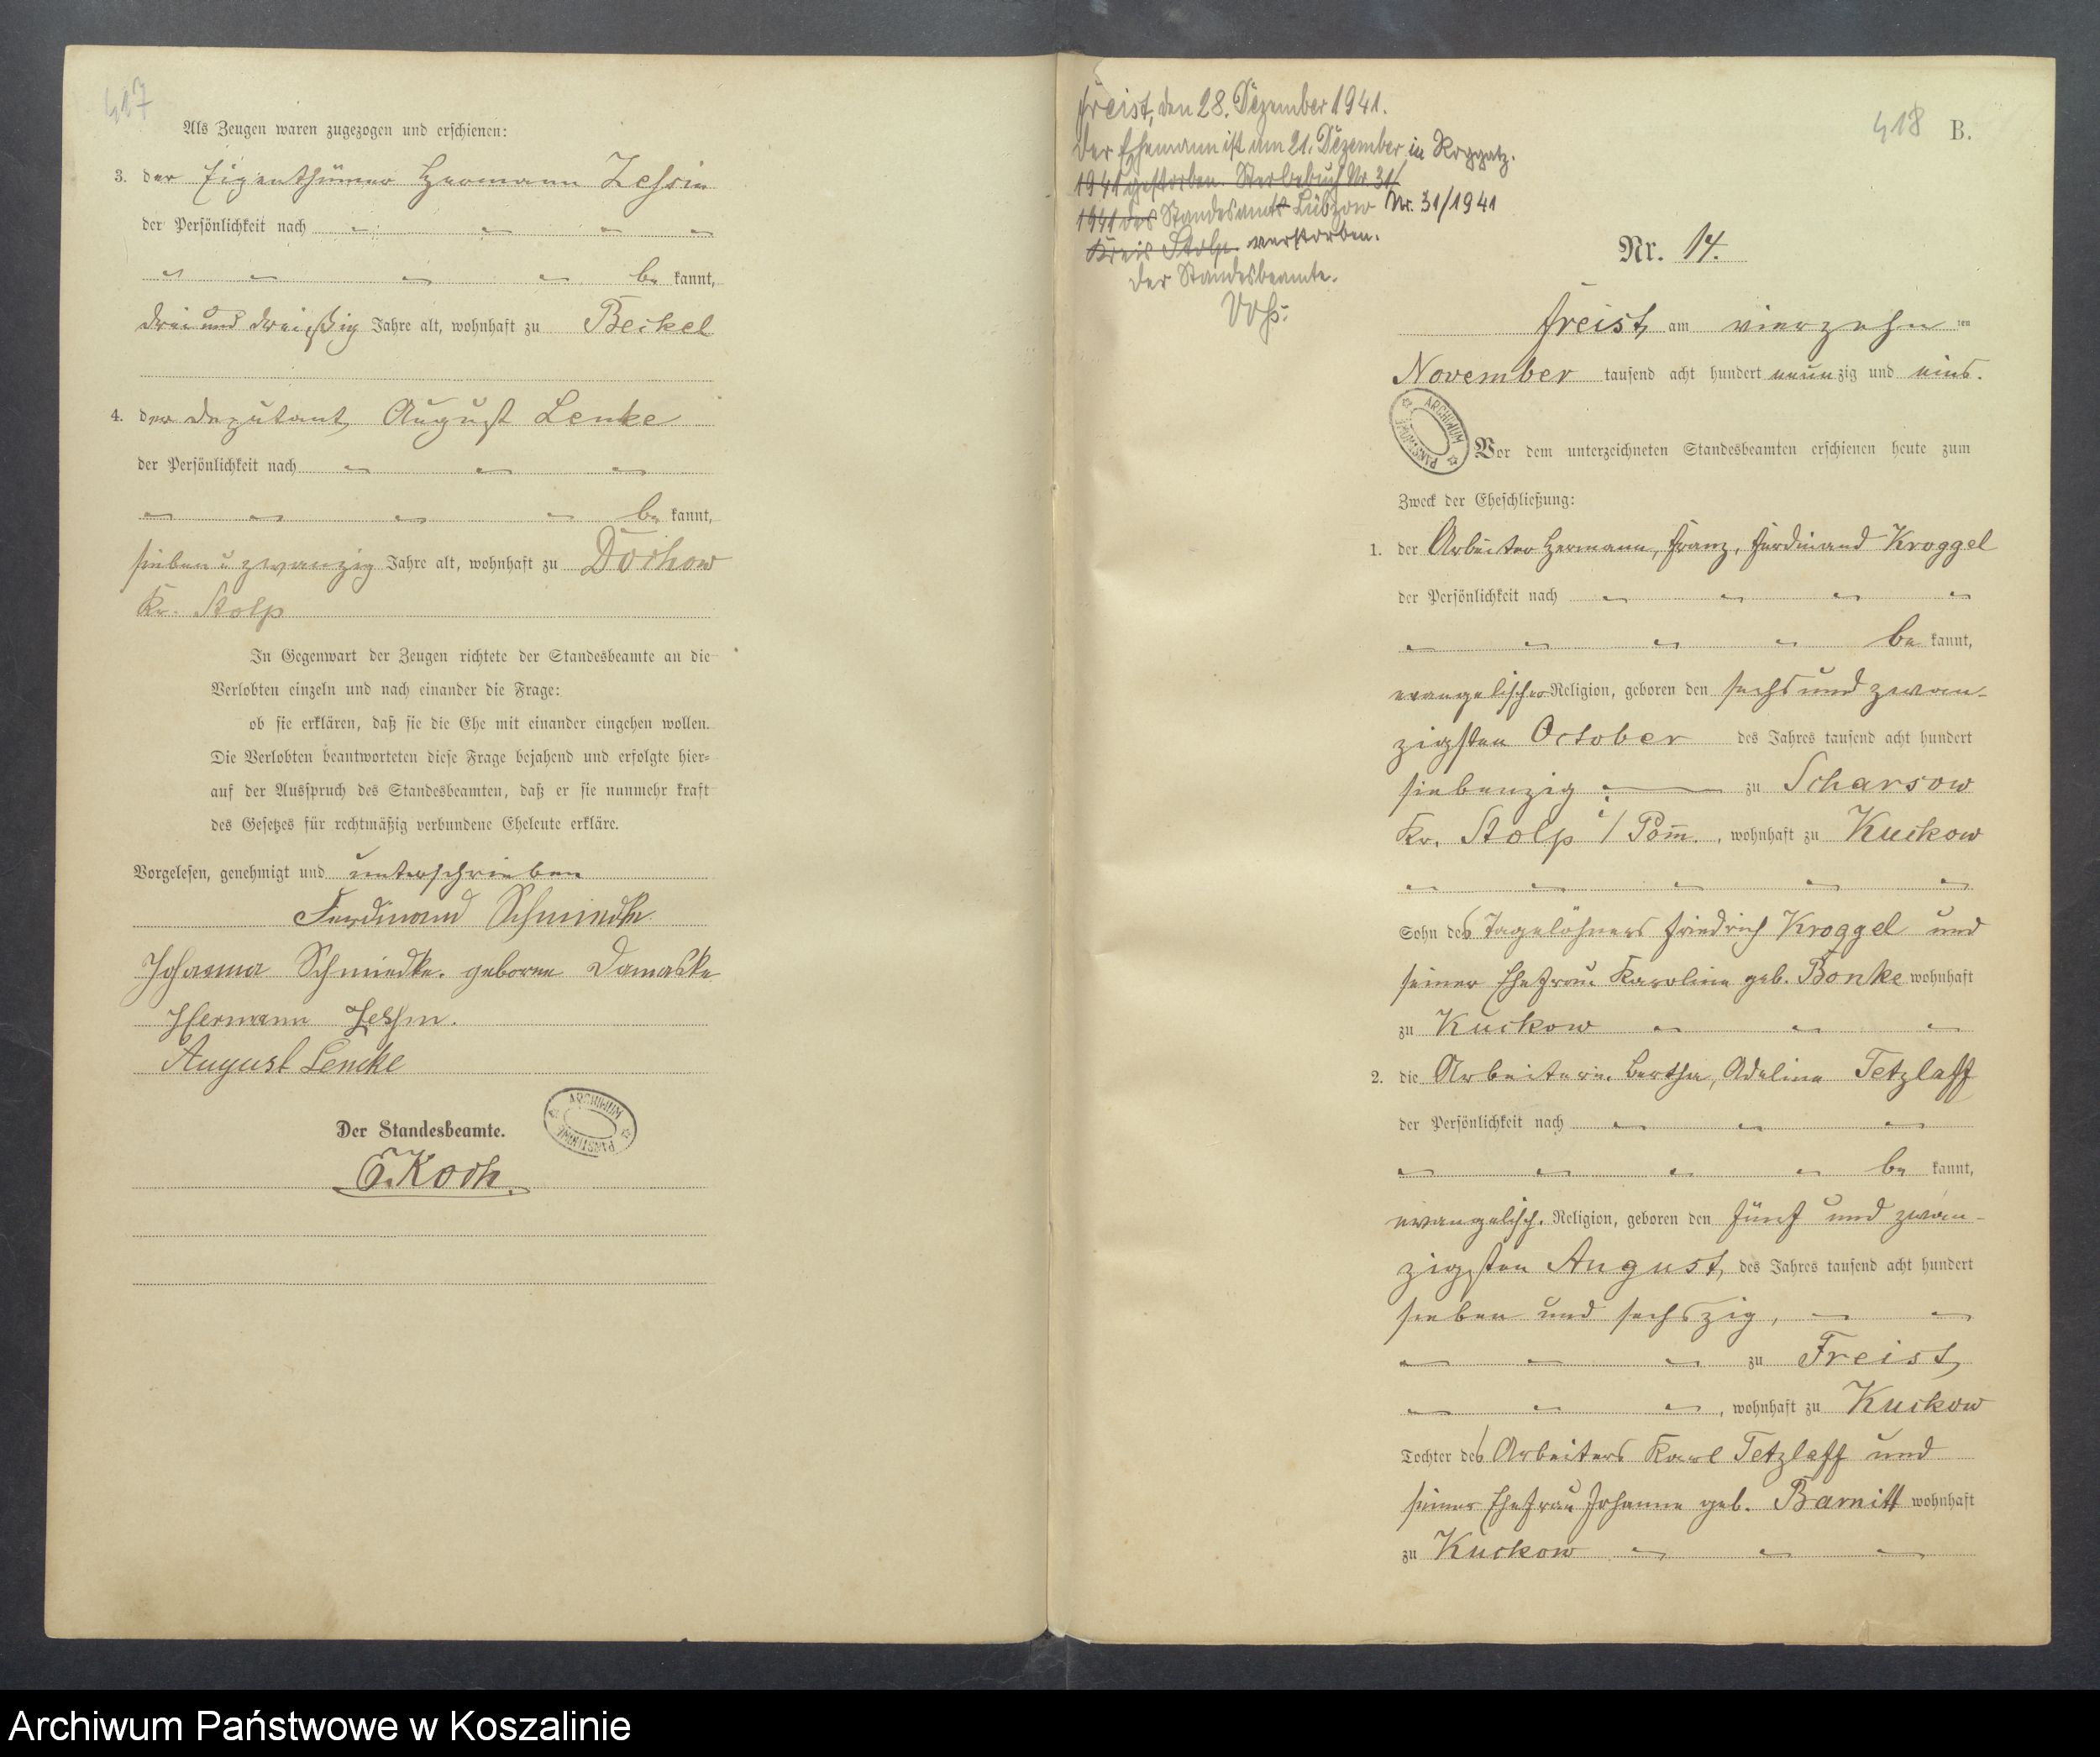 417
Als Zeugen waren zugezogen und erschienen:
3. der Eigenthümer Hermann Zessin
der Persönlichkeit nach
be kannt,
drei und dreißig Jahre alt, wohnhaft zu Beckel
4. der Deputant, August Lenke
der Persönlichkeit nach
be kannt,
sieben u zwanzig Jahre alt, wohnhaft zu Dochow
Kr. Stolp
In Gegenwart der Zeugen richtete der Standesbeamte an die
Verlobten einzeln und nach einander die Frage:
ob sie erklären, daß sie die Ehe mit einander eingehen wollen.
Die Verlobten beantworteten diese Frage bejahend und erfolgte hier=
auf der Ausspruch des Standesbeamten, daß er sie nunmehr kraft
des Gesetzes für rechtmäßig verbundene Eheleute erkläre.
Vorgelesen, genehmigt und unterschrieben
Ferdinand Schmiedke
Johanna Schmiedke. geborne Damaske
Hermann Zessin.
August Lencke
Der Standesbeamte.
ARCHIWUM PAŃSTWOWE
Koch.
418 B.
Freist, den 28. Dezember 1941.
Der Ehemann ist am 21. Dezember in Roggatz.
1941 gestorben. Sterbebuch Nr. 31/
1941 des Standesamts Lübzow Nr. 31/1941
Kreis Stolp. verstorben.
Der Standesbeamte.
Nr. 14.
Freist, am vierzehn ten
November tausend acht hundert neunzig und eins.
ARCHIWUM PAŃSTWOWE
Vor dem unterzeichneten Standesbeamten erschienen heute zum
Zweck der Eheschließung:
1. der Arbeiter Hermann, Franz, Ferdinand Kroggel
der Persönlichkeit nach
be kannt,
evangelischer Religion, geboren den sechs und zwan-
zigsten October des Jahres tausend acht hundert
siebenzig zu Scharsow
Kr. Stolp i/ Pom̅., wohnhaft zu Kuckow
Sohn des Tagelöhners Friedrich Kroggel und
seiner Ehefrau Karoline geb. Bonke wohnhaft
zu Kuckow
2. die Arbeiterin, Bertha, Adeline Tetzlaff
der Persönlichkeit nach
be kannt,
evangelisch. Religion, geboren den fünf und zwan-
zigsten August, des Jahres tausend acht hundert
sieben und sechszig,
zu Freist,
, wohnhaft zu Kuckow
Tochter des Arbeiters Karl Tetzlaff und
seiner Ehefrau Johanne geb. Barnitt wohnhaft
zu Kuckow
Archiwum Państwowe w Koszalinie